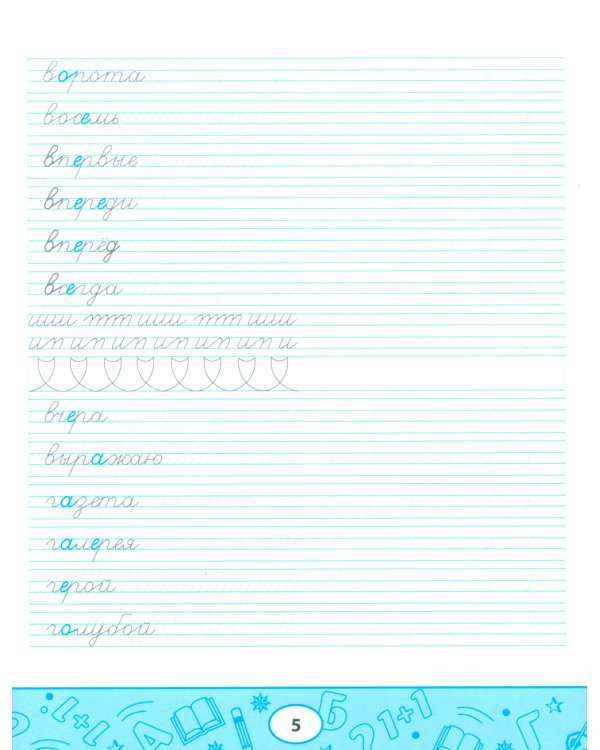 ворота
восемь
впервые
впереди
вперёд
всегда
шии тт шии тт шии
ип ип ип ип ип ип и
вчера
выражаю
газета
галерея
герой
голубой
1+1 А 5 Б 2 1+1 Г